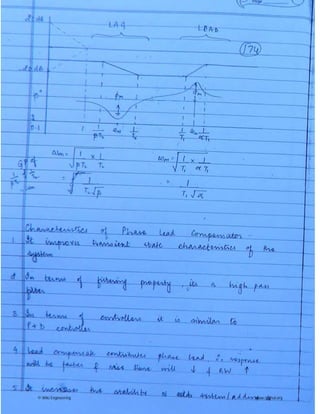 LAG LEAD
174
-20 dB
φm φm
1 1/βT₂ ωm 1/T₂ 1/T₁ ωm 1/αT₁
ωm = √(1/βT₂ × 1/T₂) ωm = √(1/T₁ × 1/αT₁)
= 1/T₂√β = 1/T₁√α
Characteristics of Phase Lead Compensator
1 It improves transient state characteristics of the
system
2 In terms of filtering property, it is high pass
filter
3 In terms of controllers it is similar to
P+D controller
4 Lead compensator contributes phase lead ∴ response
will be faster & rise time will ↓ & BW ↑
5 It increases the stability of system